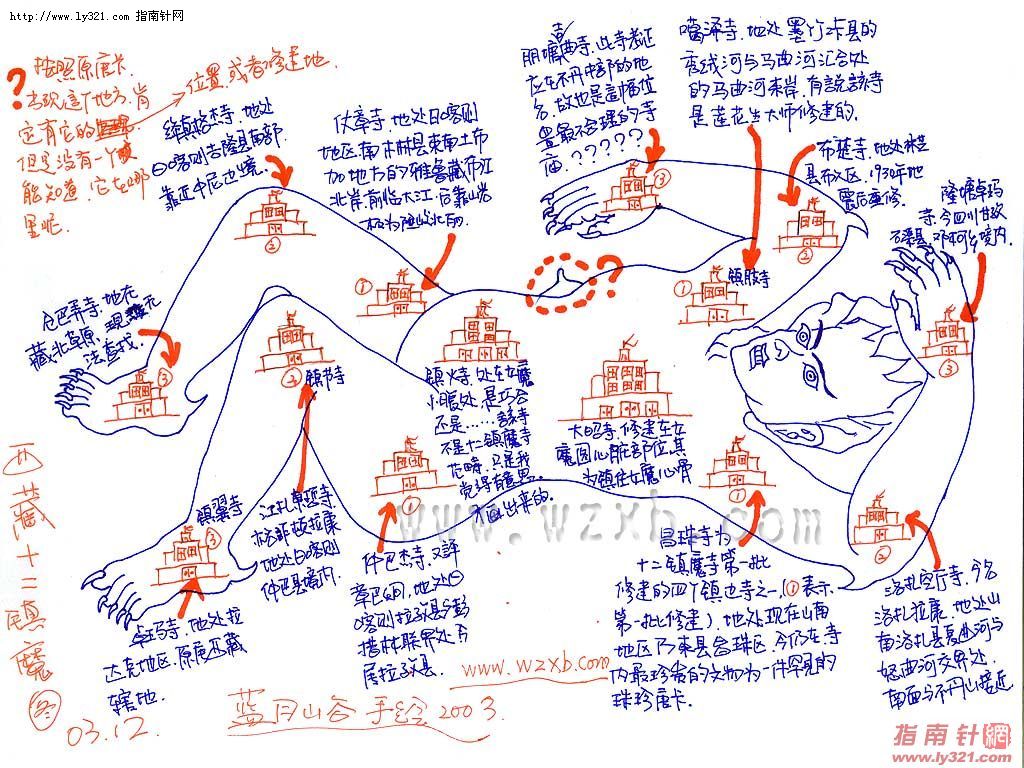 http://www.ly321.com 指南针网
?
按照原唐卡
出现这个地方,肯
定有它的
位置,或者修建地.
但是没有一个
能知道,它在哪
里呢.
地处
日喀则吉隆县南部
靠近中尼边境.
仗宰寺,地处日喀则
地区,南木林县东南土布
加地方的雅鲁藏布江
北岸,前临大江,后靠山岩
朗塘曲寺,此寺考证
应在不丹中部的地
名,故也是這幅位
置最不合理的寺
庙.?????
噶泽寺,地处墨竹工卡县的
秀绒河与马曲河汇合处
的马曲河东岸,有說該寺
是莲花生大师修建的.
布楚寺,地处林芝
县布久区,1930年地
震后重修.
隆塘卓玛
寺,今四川甘孜
石渠县,邓柯乡境内.
仓巴弄寺,地在
藏北草原,现無
法查找.
③
②
①
③
②
①
?
镇肢寺
③
③
②
镇节寺
镇火寺,处在女魔
小腹处,是巧合
还是……該寺
不是十二镇魔寺
范畴,只是我
觉得有意思
画出来的.
大昭寺,修建在女
魔图心脏部位,其
为镇住女魔心骨
①
①
②
镇翼寺
③
卓玛寺,地处拉
达克地区,原属西藏
辖地.
江扎東哲寺
地处日喀则
仲巴县境内.
仲巴杰寺,又譯
章巴江,地处日
喀则拉孜县与彭
措林联界处,今
属拉孜县
昌珠寺为
十二镇魔寺第一批
修建的四个镇边寺之一.(①表示
第一批修建),地处现在山南
地区乃東县昌珠区,今仍在寺
内最珍贵的文物为一件罕見的
珠珍唐卡.
洛扎空厅寺,今名
洛扎拉康,地处山
南洛扎县夏曲河与
怒曲河交界处,
南面与不丹山接近
西藏十二镇魔图
03.12.
蓝月山谷 手绘 2003.
www.wzxb.com
www.wzxb.com
指南针網
www.ly321.com